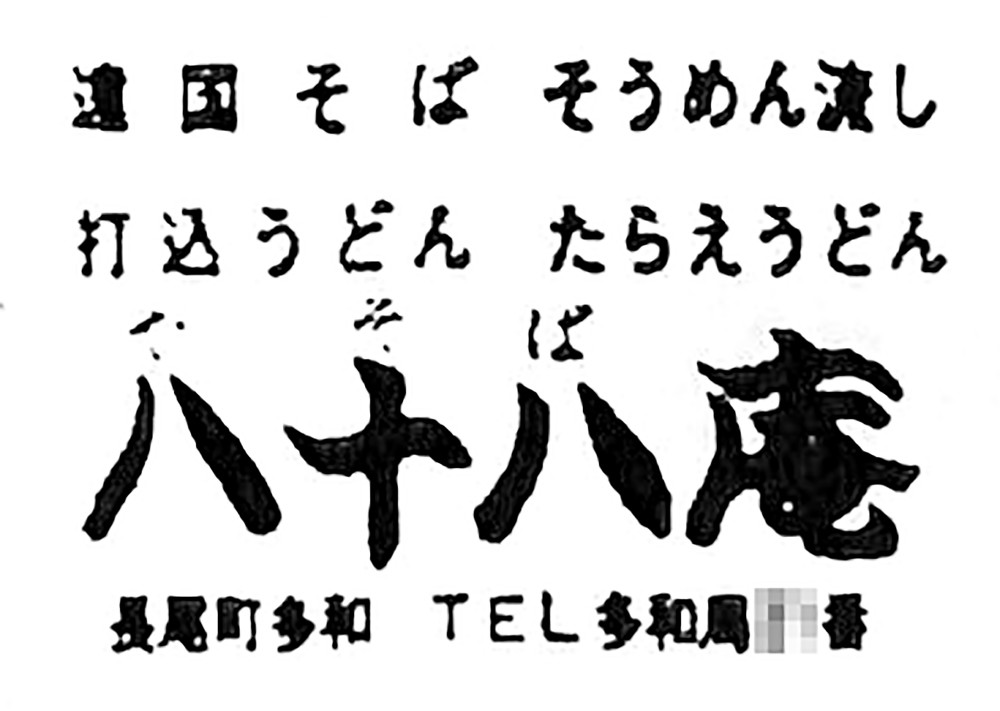 遍国そば そうめん流し
打込うどん たらえうどん
そば
八十八庵
長尾町多和 TEL多和局 番